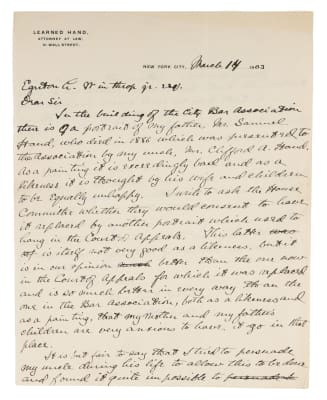 LEARNED HAND,
ATTORNEY AT LAW,
WALL STREET.
NEW YORK CITY, March 14 1903
Egerton L. Winthrop Jr. Esq.
Dear Sir
In the building of the City Bar Association
there is a portrait of my father, Mr. Samuel
Hand, who died in 1886 which was presented to
the association by my uncle, Mr. Clifford A. Hand.
As a painting it is exceedingly bad and as a
likeness it is thought by his wife and children
to be equally unhappy. I write to ask the House
Committee whether they would consent to have
it replaced by another portrait which used to
hang in the Court of Appeals. This latter
is itself not very good as a likeness, but it
is in our opinion better than the one now
in the Court of Appeals for which it was replaced
and is so much better in every way than the
one in the Bar Association, both as a likeness and
as a painting, that my mother and my father's
children are very anxious to have it go in that
place.
It is but fair to say that I tried to persuade
my uncle during his life to allow this to be done
and found it quite impossible to